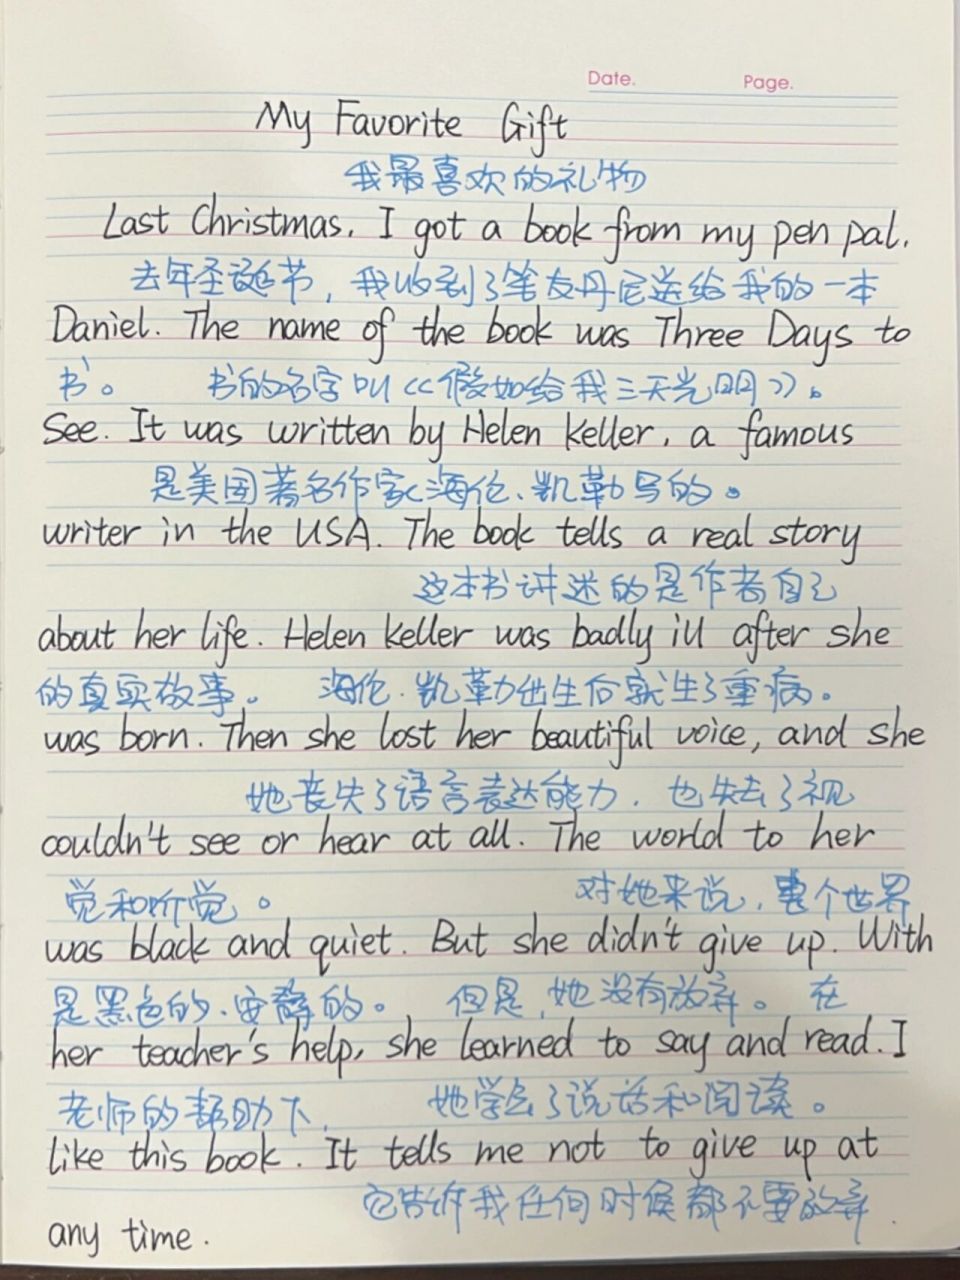 Date. Page.
My Favorite Gift
我最喜欢的礼物
Last Christmas, I got a book from my pen pal,
去年圣诞节，我收到了笔友丹尼送给我的一本
Daniel. The name of the book was Three Days to
书。 书的名字叫《假如给我三天光明》。
See. It was written by Helen Keller, a famous
是美国著名作家海伦、凯勒写的。
writer in the USA. The book tells a real story
这本书讲述的是作者自己
about her life. Helen Keller was badly ill after she
的真实故事。 海伦.凯勒出生后就生了重病。
was born. Then she lost her beautiful voice, and she
她丧失了语言表达能力，也失去了视
couldn't see or hear at all. The world to her
觉和听觉。 对她来说，整个世界
was black and quiet. But she didn't give up. With
是黑色的、安静的。 但是，她没有放弃。 在
her teacher's help, she learned to say and read. I
老师的帮助下， 她学会了说话和阅读。
like this book. It tells me not to give up at
它告诉我任何时候都不要放弃.
any time.